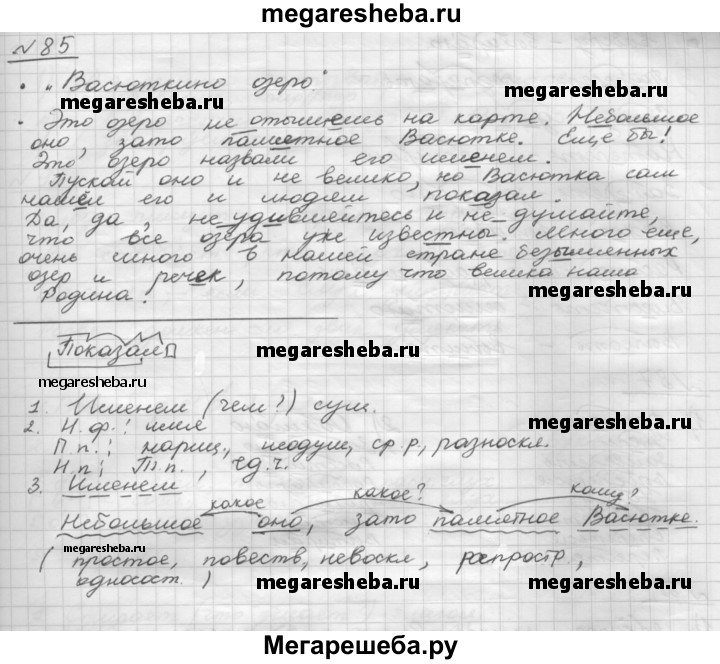 megaresheba.ru
№85
• "Васюткино озеро"
megaresheba.ru megaresheba.ru
• Это озеро не отыщешь на карте. Небольшое
оно, зато памятное Васютке. Еще бы!
Это озеро назвали его именем.
Пускай оно и не велико, но Васютка сам
нашел его и людям показал.
Да, да, не удивляйтесь и не думайте,
что все озера уже известны. Много еще,
очень много в нашей стране безымянных
озер и речек, потому что велика наша
Родина!
megaresheba.ru
Показал
megaresheba.ru
megaresheba.ru
1. Именем (чем?) сущ.
2. Н.ф.: имя
П.п.: нариц., неодуш, ср.р., разноскл.
Н.п: Т.п., ед.ч.
megaresheba.ru
3. Именем
какое какое? кому?
Небольшое оно, зато памятное Васютке.
megaresheba.ru
(простое, повеств, невоскл, распростр,
односост.)
megaresheba.ru megaresheba.ru
Мегарешеба.ру